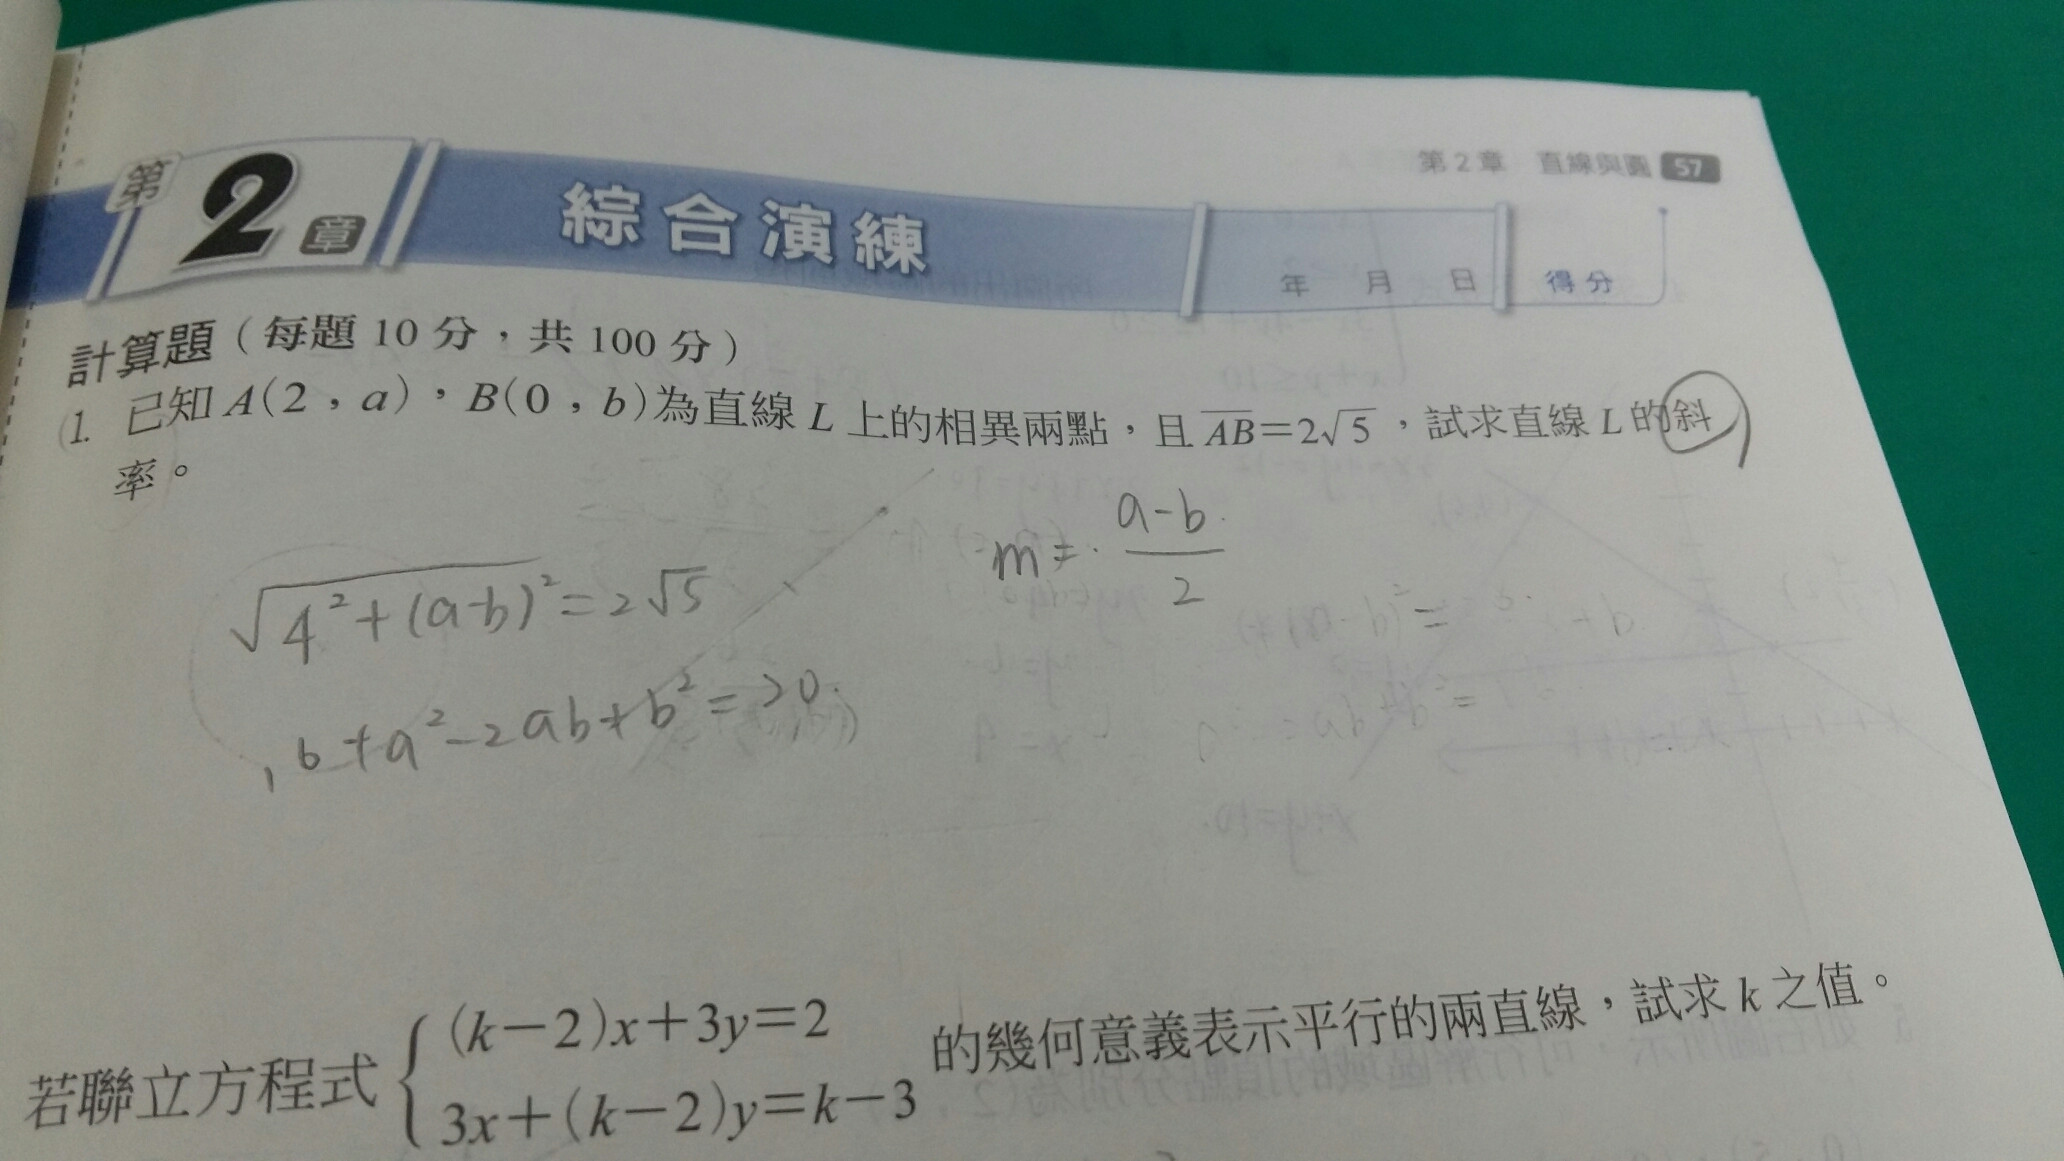 第2章 直線與圓 57
第2章 綜合演練
年 月 日 得分
計算題(每題 10 分,共 100 分)
1. 已知 A(2,a),B(0,b)為直線 L 上的相異兩點,且 AB=2√5,試求直線 L 的斜
率。
m = a-b / 2
√4²+(a-b)² = 2√5
16+a²-2ab+b²=20
若聯立方程式 { (k-2)x+3y=2
3x+(k-2)y=k-3 的幾何意義表示平行的兩直線,試求 k 之值。